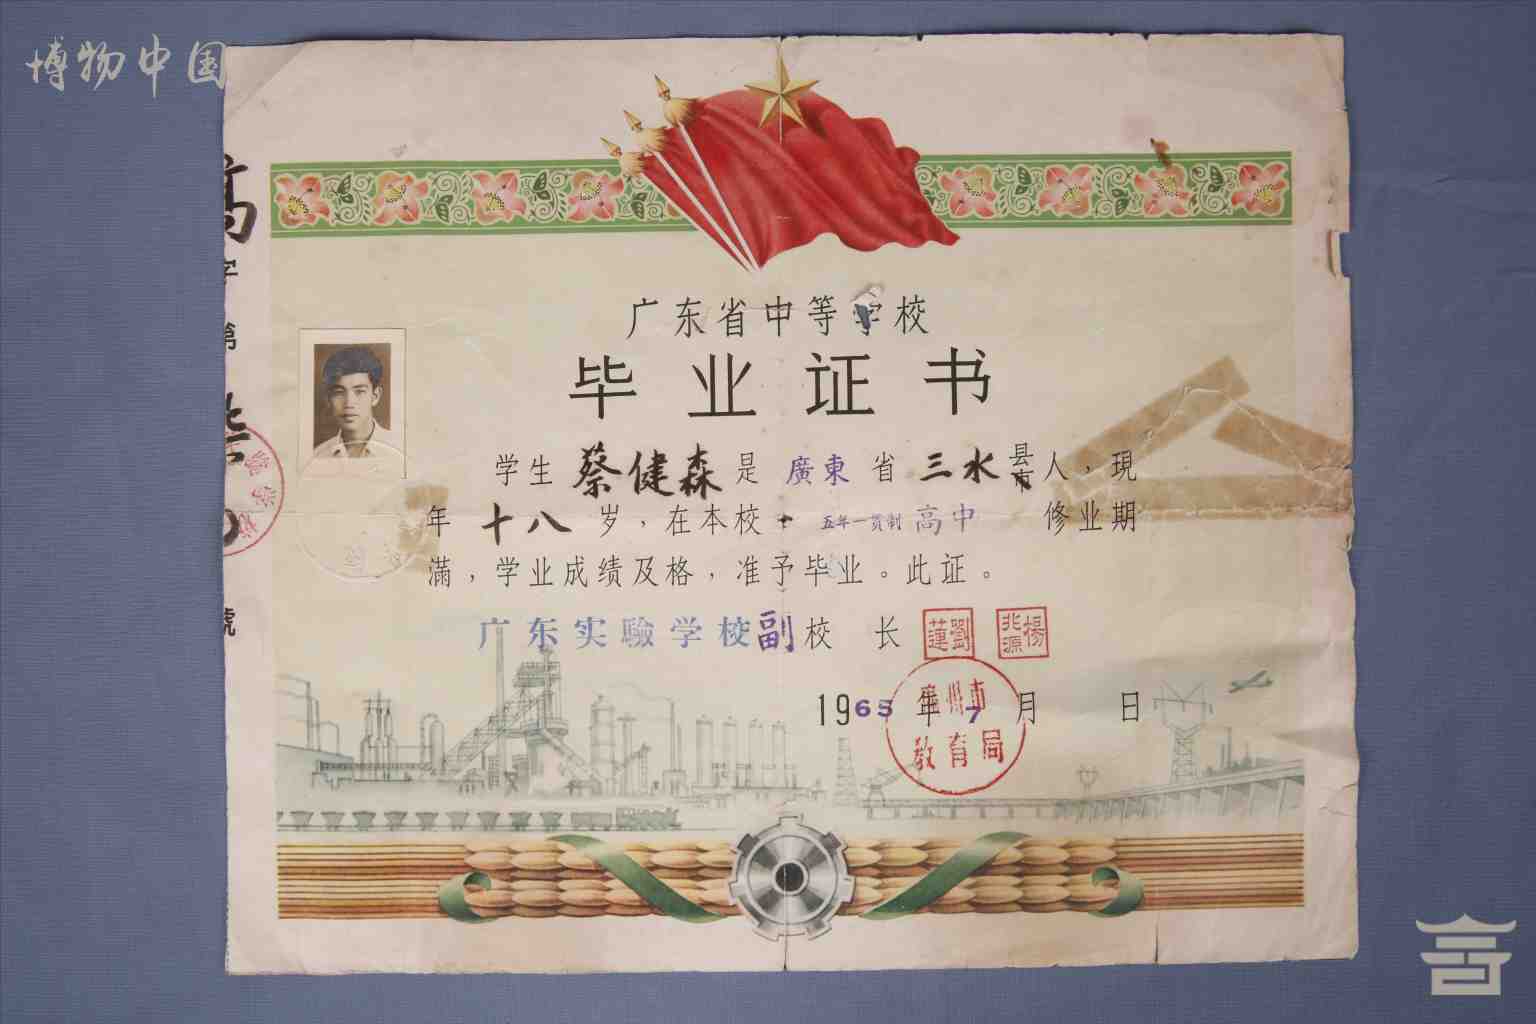 博物中国
广东省中等学校
毕业证书
学生蔡健森是廣東省三水县市人，现
年十八岁，在本校 五年一贯制高中 修业期
满，学业成绩及格，准予毕业。此证。
广东实验学校副校长 劉蓮 楊兆源
1965年7月 日
廣州市
教育局
高字第 號